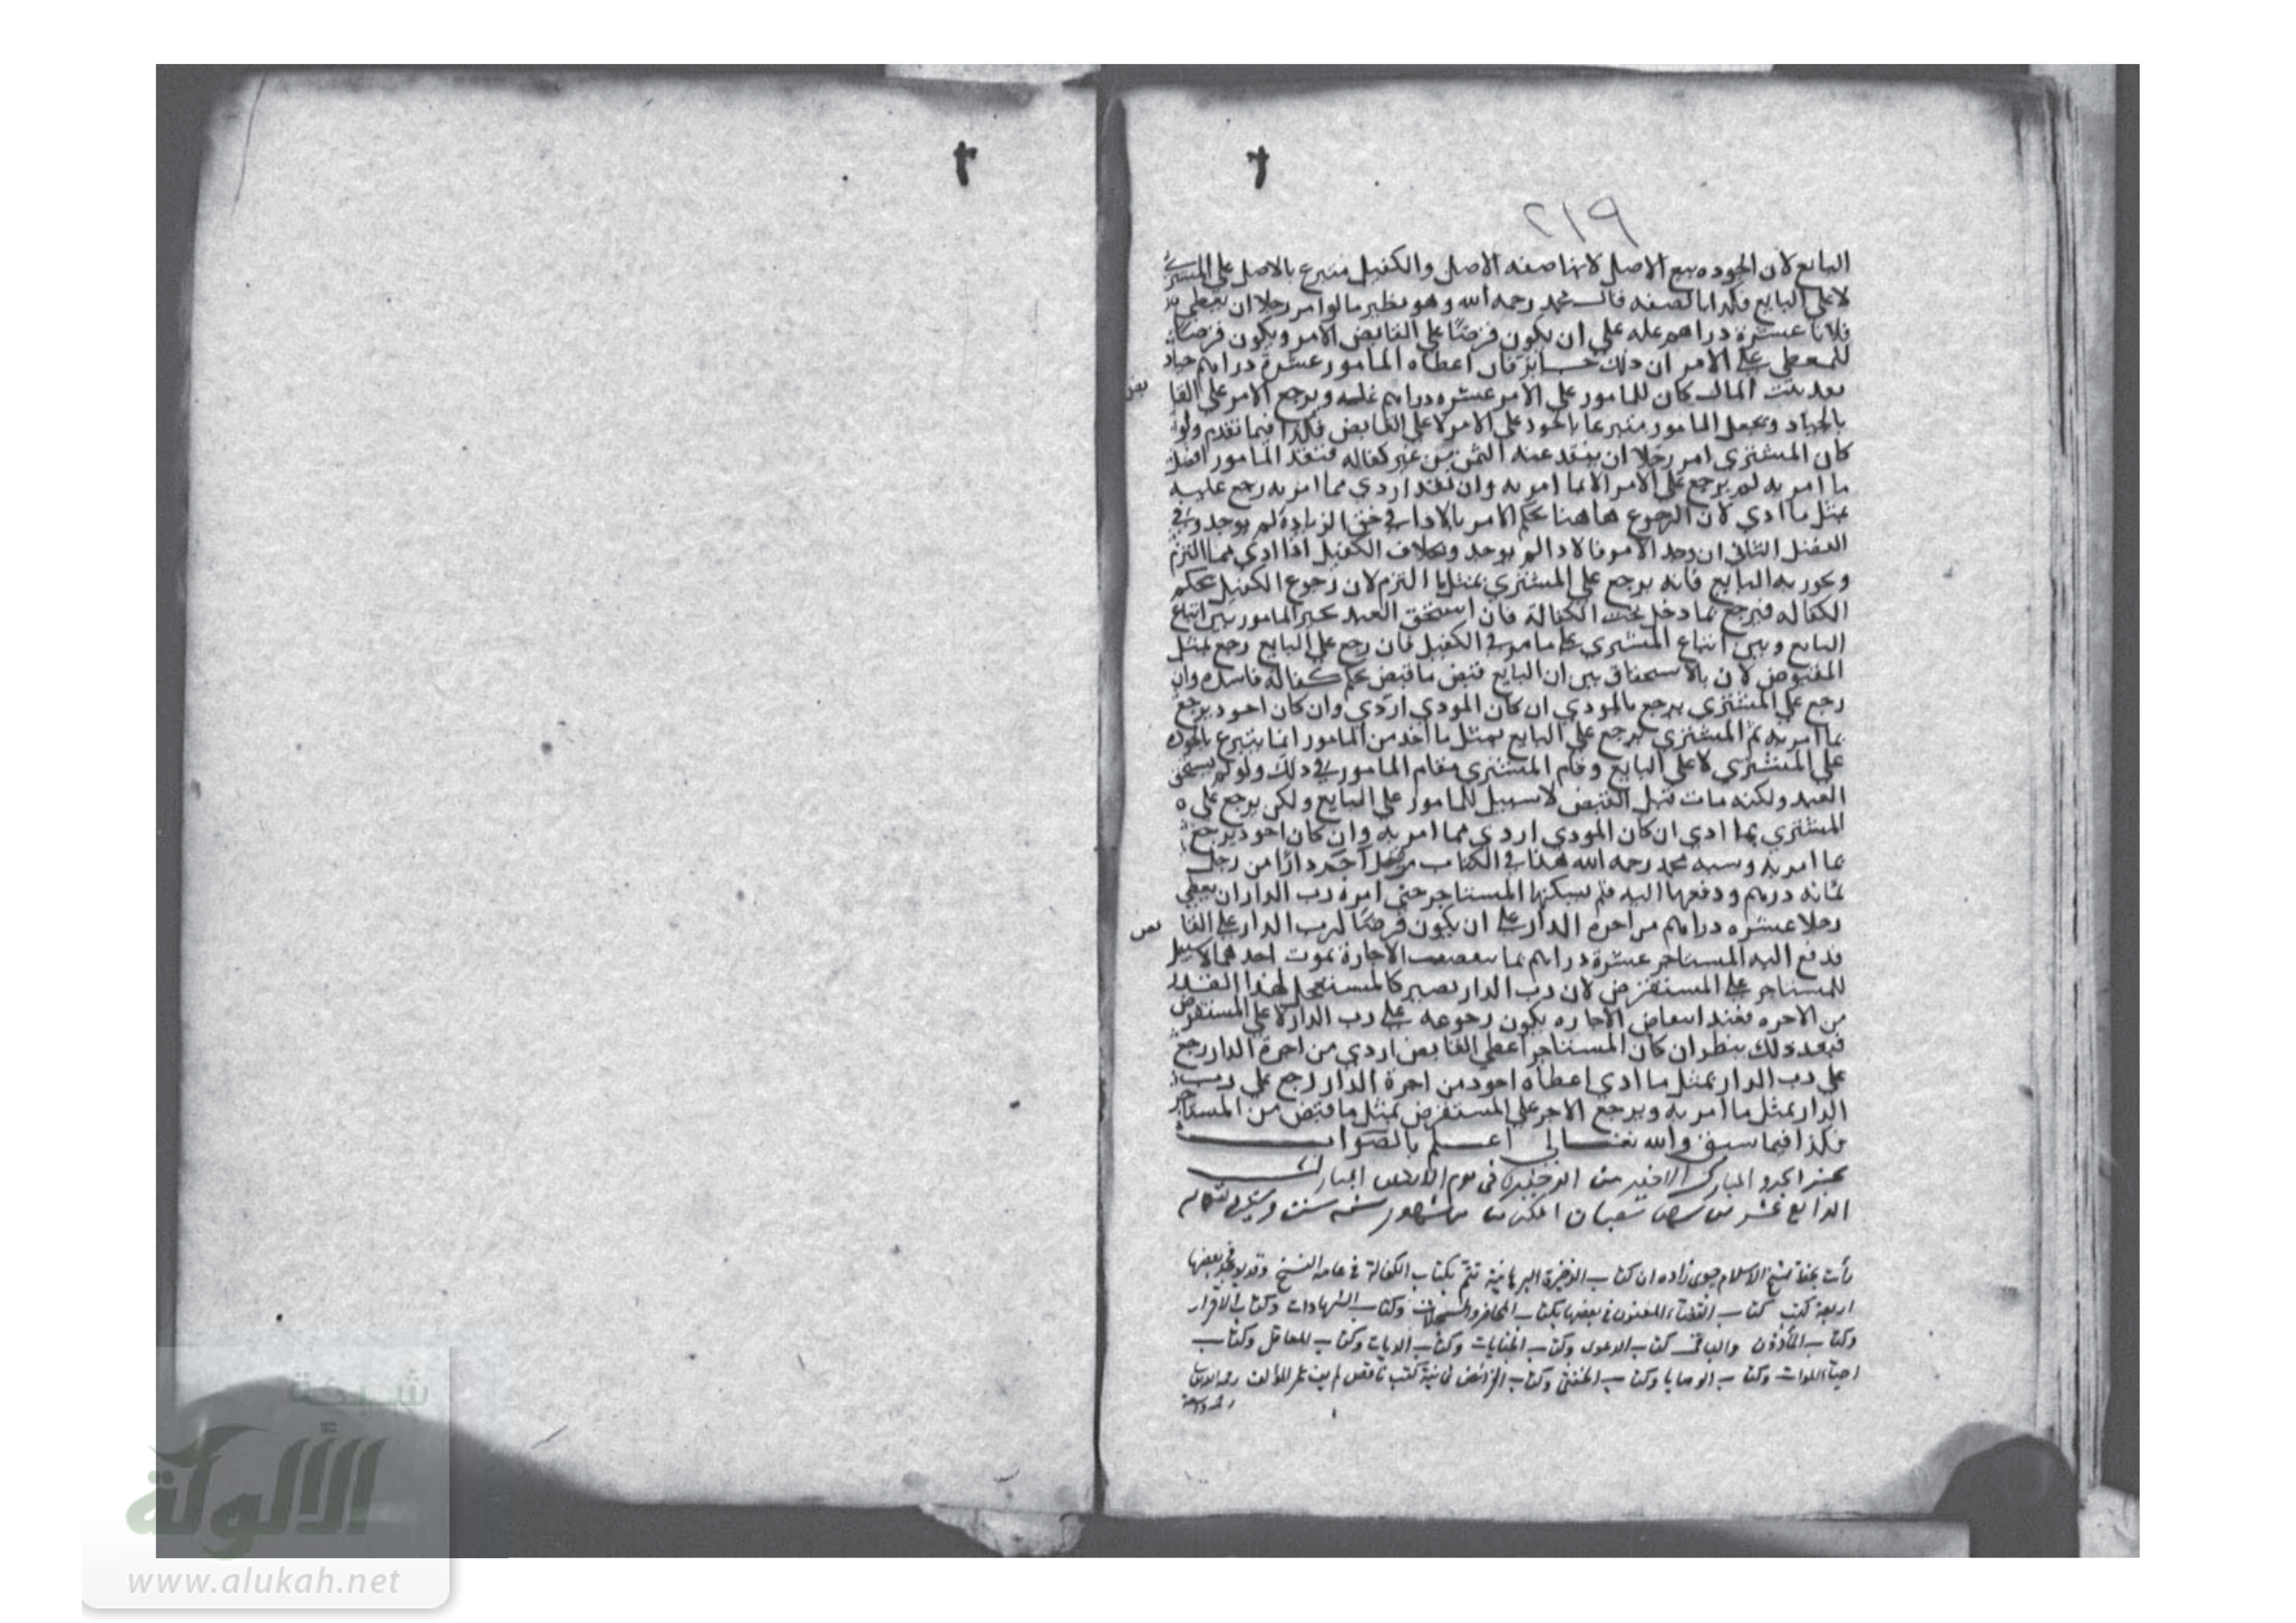 ٢١٩
البايع لان الجوده تبع الاصل لانها صفه الاصل والكفيل متبرع بالاصل على المشتري
لا على البايع فكذا بالصفه قال محمد رحمه الله وهو نظير ما لو امر رجلا ان يعطي
فلانا عشرة دراهم غله على ان يكون قرضا على القابض للامر ويكون قرضا
للمعطي على الامر ان ذلك جايز فان اعطاه المامور عشرة دراهم جياد
المال كان للمامور على الامر عشره دراهم غله ويرجع الامر على القا
بض
بالجياد ويجعل المامور متبرعا بالجود على الامر لا على القابض فكذا فيما تقدم ولو
كان المشتري امر رجلا ان ينقد عنه الثمن من غير كفاله فنقد المامور افضل
ما امر به لم يرجع على الامر الا بما امر به وان نقد اردي مما امر به رجع عليه
بمثل ما ادي لان الرجوع هاهنا بحكم الامر بالادا في حق الزيادة لم يوجد وفي
الفصل الثاني ان وجد الامر فالادا لم يوجد وبخلاف الكفيل اذا ادي مما التزم
وتجوز به البايع فانه يرجع على المشتري بمثل ما التزم لان رجوع الكفيل بحكم
الكفاله فيرجع بما دخل تحت الكفالة فان استحق العبد تخير المامور بين اتباع
البايع وبين اتباع المشتري كما مر في الكفيل فان رجع على البايع رجع بمثل
المقبوض لان بالاستحقاق تبين ان البايع قبض ما قبض بحكم كفالة فاسده وان
رجع على المشتري يرجع بالمودي ان كان المودي اردي وان كان اجود يرجع
بما امر به ثم المشتري يرجع على البايع بمثل ما اخذ من المامور انما يتبرع بالجوده
على المشتري لا على البايع وقام المشتري مقام المامور في ذلك ولو لم يستحق
العبد ولكنه مات قبل القبض لا سبيل للمامور على البايع ولكن يرجع على
المشتري بما ادي ان كان المودي اردي مما امر به وان كان اجود يرجع
بما امر به وشبه محمد رحمه الله هذا في الكتاب برجل اجر دارا من رجل
بمائه درهم ودفعها اليه فلم يسكنها المستاجر حتى امره رب الدار ان يعطي
رجلا عشره دراهم من اجرة الدار على ان يكون قرضا لرب الدار على القا
بض
فدفع اليه المستاجر عشرة دراهم الاجارة بموت احدهما لا سبيل
للمستاجر على المستقرض لان رب الدار يصير كالمستعجل لهذا القدر
من الاجره فعند انتقاض الاجاره يكون رجوعه على رب الدار لا على المستقرض
فبعد ذلك ينظر ان كان المستاجر اعطى القابض اردي من اجرة الدار رجع
على رب الدار بمثل ما ادي اعطاه اجود من اجرة الدار رجع على رب
الدار بمثل ما امر به ويرجع الاجر على المستقرض بمثل ما قبض من المستاجر
فكذا فيما سبق والله تعالى اعلم بالصواب
المبارك الاخير من الذخيره في يوم المبارك
الرابع عشر من شعبان المكرم من شهور سنه
رأيت بخط شيخ الاسلام جوى زاده ان كتاب الذخيرة البرهانية تتم بكتاب الكفالة في عامة النسخ وقد يوجد في بعضها
اربعة كتب كتاب القضاء المعنون في بعضها بكتاب المحاضر والسجلات وكتاب الشهادات وكتاب الاقرار
وكتاب المأذون والباقى كتاب الدعوى وكتاب الجنايات وكتاب الديات وكتاب المعاقل وكتاب
احياء الموات وكتاب الوصايا وكتاب الخنثى وكتاب الفرائض ثمانية كتب ناقص لم المؤلف
رحمة واسعة
شبكة
الألوكة
www.alukah.net